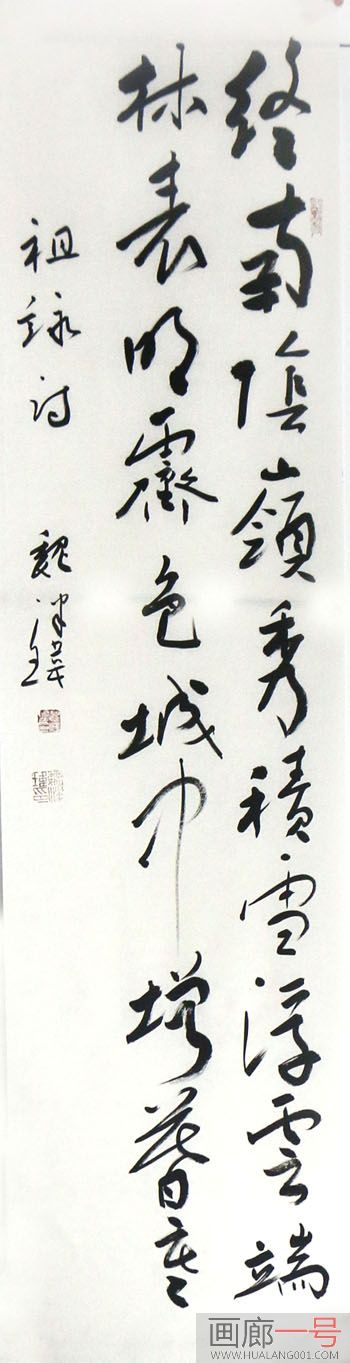 终南陰嶺秀積雪浮雲端
林表明霽色城中增暮寒
祖詠詩
魏津
画廊一号
WWW.HUALANG001.COM